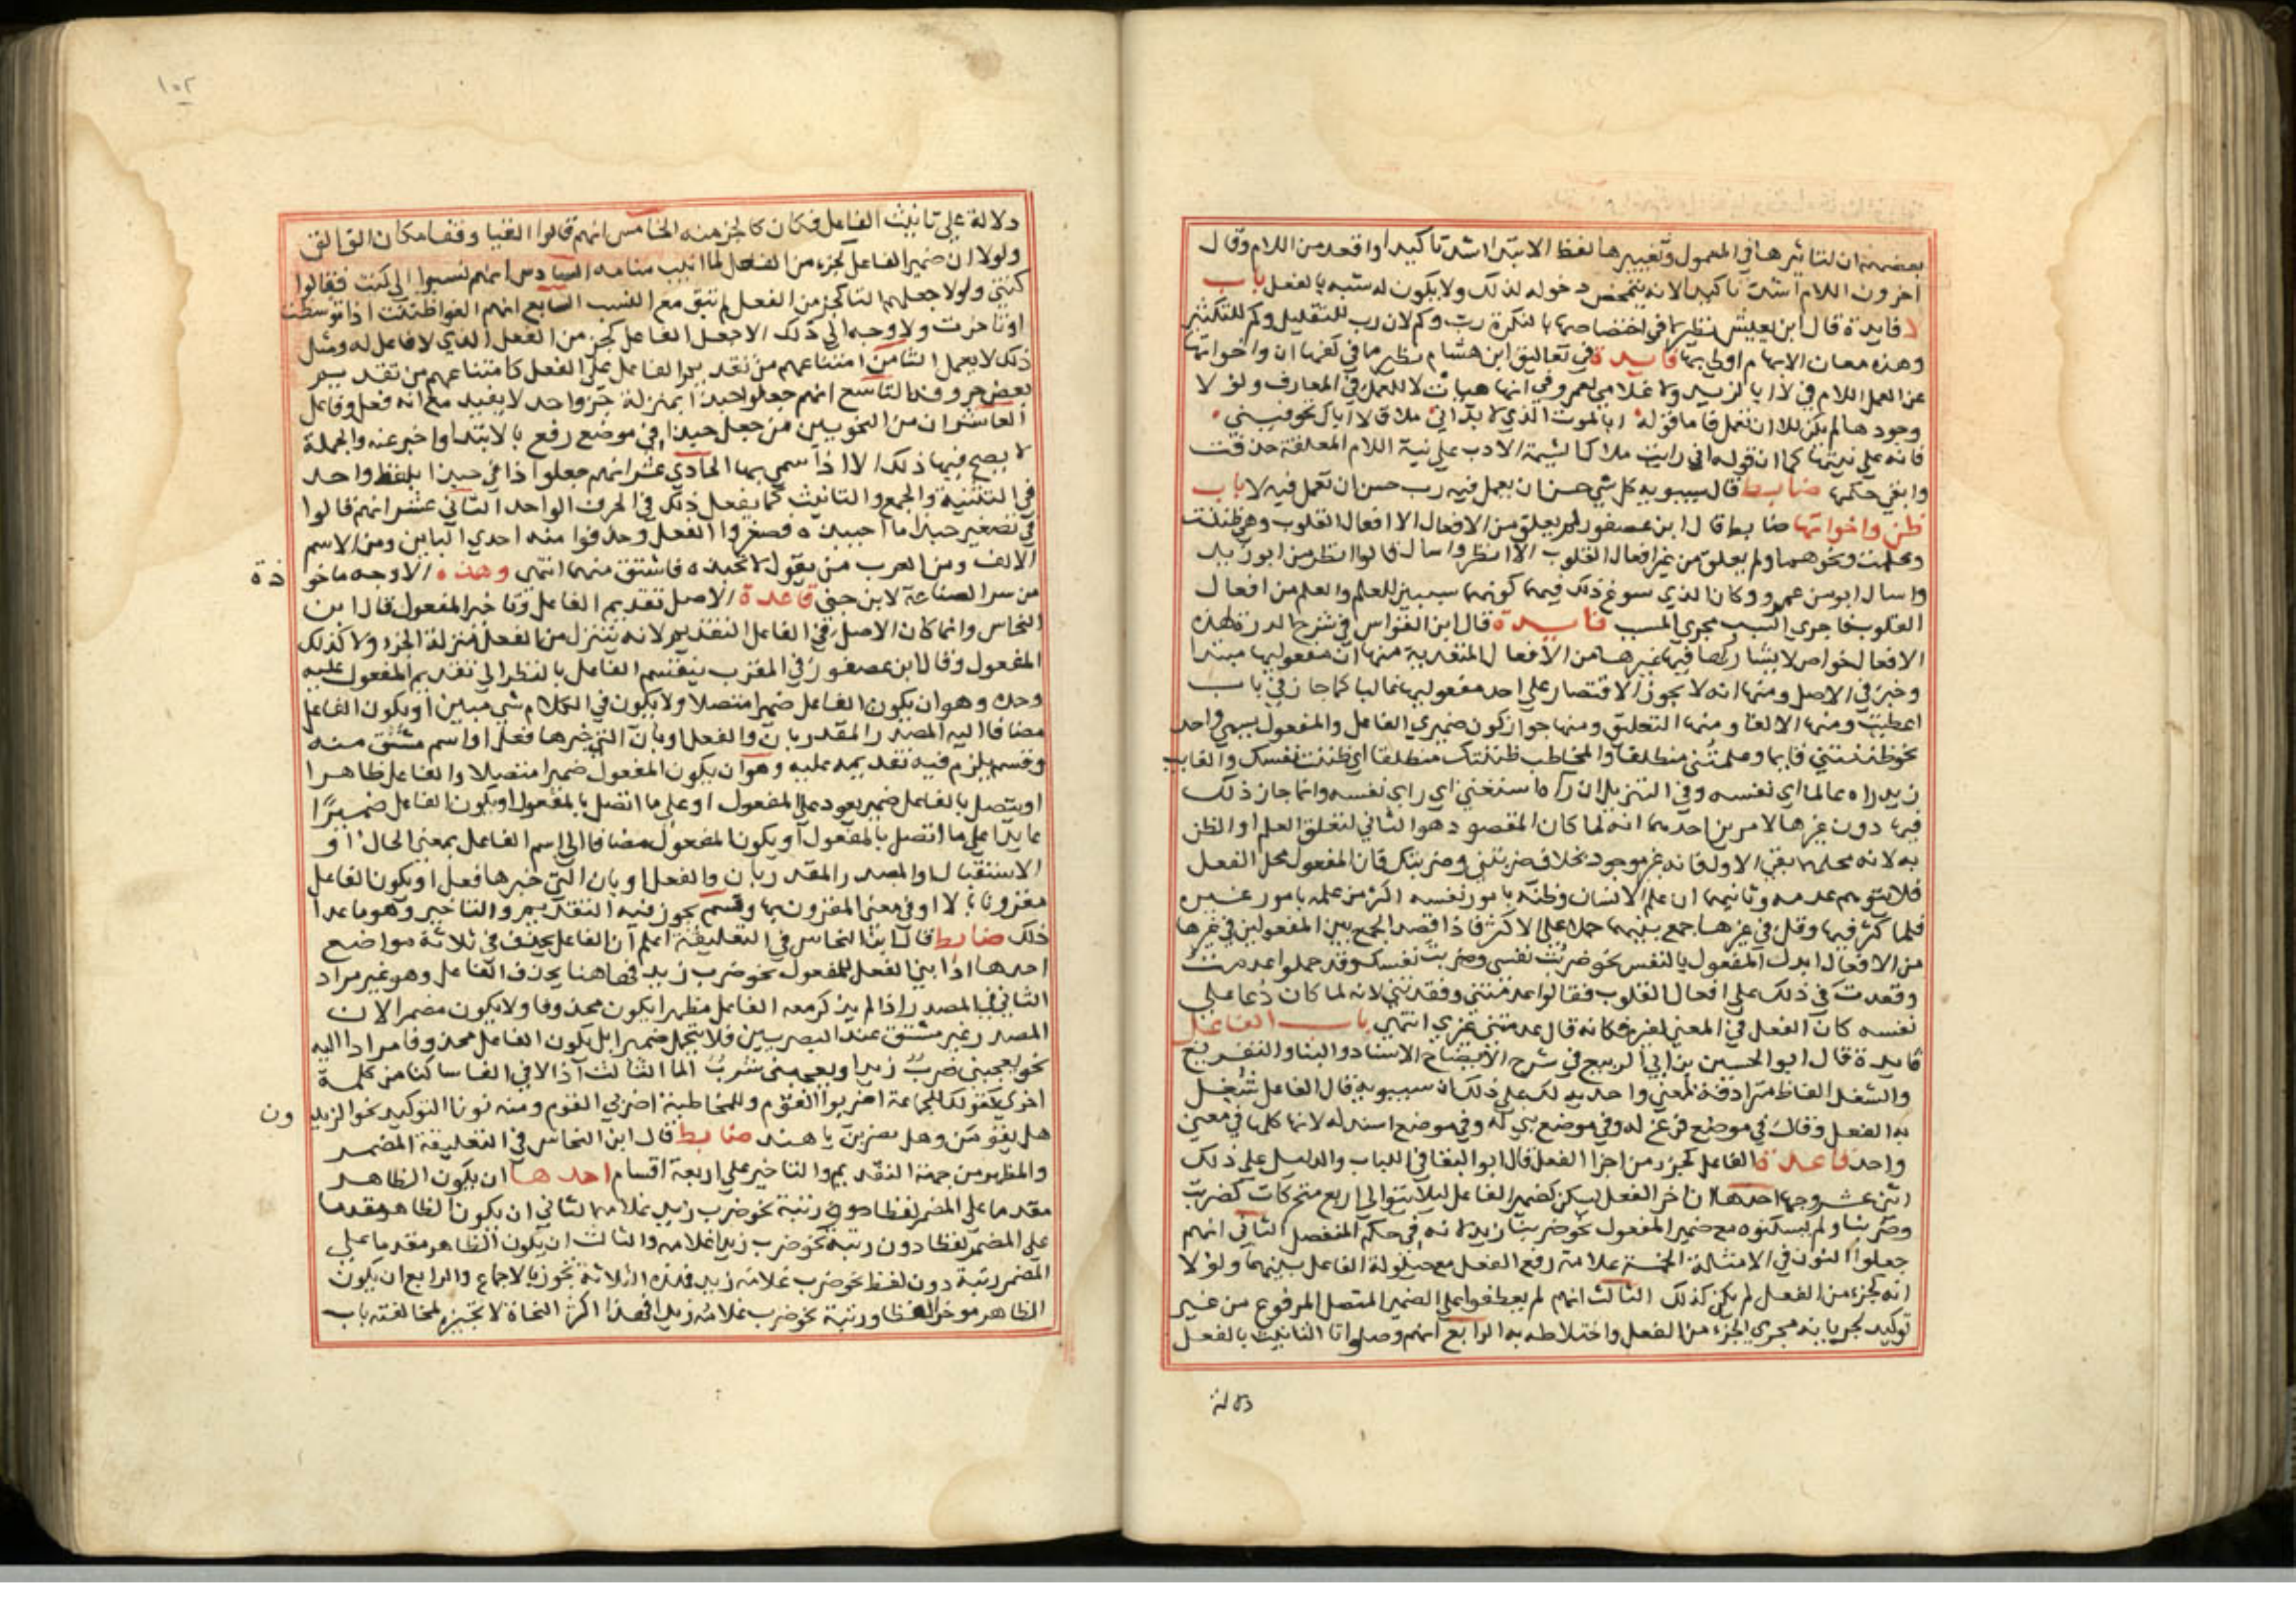 بعضهم ان لتاثيرها في المعمول وتغييرها لفظ الابتدا اشد تاكيدا واقعد من اللام وقال
اخرون اللام اشد تاكيدا لانه يتمحض دخوله لذلك ولا يكون له شبه بالفعل باب
لا فايدة قال ابن يعيش نظيرها في اختصاصها بالنكرة رب وكم لان رب للتقليل وكم للتكثير
وهذه معان الابهام اولى بها فايدة في تعاليق ابن هشام نظير ما في كفها ان واخواتها
عن العمل اللام في لا ابا لزيد ولا غلامي لعمرو في انها هيات لا للعمل في المعارف ولولا
وجودها لم يكن للا ان تعمل فاما قوله ابالموت الذي لا بد اني ملاق لا اباك تخوفيني
فانه على نيتها كما ان قوله اني رايت ملاك الشيمة الادب على نية اللام المعلقة حذفت
وابقي حكمها ضابط قال سيبويه كل شي حسن ان يعمل فيه رب حسن ان تعمل فيه لا باب
ظن واخواتها ضابط قال ابن عصفور لم يعلق من الافعال الا افعال القلوب وهي ظننت
وعلمت ونحوهما ولم يعلق من غير افعال القلوب الا انظر واسال قالوا انظر من ابو زيد
واسال ابو من عمرو وكان الذي سوغ ذلك فيهما كونهما سببين للعلم والعلم من افعال
القلوب فاجري السبب مجرى المسبب فايدة قال ابن القواس في شرح الدرة لهذه
الافعال خواص لا يشاركها فيها غيرها من الافعال المتعدية منها ان مفعوليها مبتدا
وخبر في الاصل ومنها انه لا يجوز الاقتصار على احد مفعوليها غالبا كما جاز في باب
اعطيت ومنها الالغا ومنها التعليق ومنها جواز كون ضميري الفاعل والمفعول لمسمى واحد
نحو ظننتني قايما وعلمتني منطلقا والمخاطب ظننتك منطلقا اي ظننت نفسك والغايب
زيد راه عالما اي نفسه وفي التنزيل ان راه استغنى اي راي نفسه وانما جاز ذلك
فيها دون غيرها لامرين احدهما انه لما كان المقصود هو الثاني لتعلق العلم او الظن
به لانه محلهما بقي الاول كانه غير موجود بخلاف ضربتني وضربتك فان المفعول محل الفعل
فلا يتوهم عدمه وثانيهما ان علم الانسان وظنه بامور نفسه اكثر من علمه بامور غيره
فلما كثر فيها وقل في غيرها جمع بينهما حملا على الاكثر فاذا قصد الجمع بين المفعولين في غيرها
من الافعال ابدل المفعول بالنفس نحو ضربت نفسي وضربت نفسك وقد حملوا عدمت
وفقدت في ذلك على افعال القلوب فقالوا عدمتني وفقدتني لانه لما كان دعا على
نفسه كان الفعل في المعنى لغيره فكانه قال عدمتني غيري انتهى باب الفاعل
فايدة قال ابو الحسين بن ابي الربيع في شرح الايضاح الاسناد والبنا والتفريغ
والشغل الفاظ مترادفة لمعني واحد يدلك على ذلك ان سيبويه قال الفاعل شغل
به الفعل وقال في موضع فرغ له وفي موضع بني له وفي موضع اسند له لانها كلها في معنى
واحد قاعدة الفاعل كجزء من اجزا الفعل قال ابو البقا في اللباب والدليل على ذلك
اثنى عشر وجها احدها ان اخر الفعل يسكن لضمير الفاعل ليلا يتوالى اربع متحركات كضربت
وضربنا ولم يسكنوه مع ضمير المفعول نحو ضربنا زيد لانه في حكم المنفصل الثاني انهم
جعلوا النون في الامثلة الخمسة علامة رفع الفعل مع حيلولة الفاعل بينهما ولولا
انه كجزء من الفعل لم يكن كذلك الثالث انهم لم يعطفوا على الضمير المتصل المرفوع من غير
توكيد لجريانه مجرى الجزء من الفعل واختلاطه به الرابع انهم وصلوا تا التانيث بالفعل
دلالة
١٠٢
دلالة على تانيث الفاعل فكان كالجزء منه الخامس انهم قالوا القيا وقفا مكان الق الق
ولولا ان ضمير الفاعل كجزء من الفعل لما انيب منابه السادس انهم نسبوا الى كنت فقالوا
كنتي ولولا جعلهم التا كجزء من الفعل لم تبق مع النسب السابع انهم الغوا ظننت اذا توسطت
او تاخرت ولا وجه الى ذلك الا جعل الفاعل كجزء من الفعل الذي لا فاعل له ومثل
ذلك لا يعمل الثامن امتناعهم من تقديم الفاعل على الفعل كامتناعهم من تقديم
بعض حروفه التاسع انهم جعلوا حبذا بمنزلة جزء واحد لا يفيد مع انه فعل وفاعل
العاشر ان من النحويين من جعل حبذا في موضع رفع بالابتدا واخبر عنه والجملة
لا يصح فيها ذلك الا اذا سمي بها الحادي عشر انهم جعلوا ذا في حبذا بلفظ واحد
في التثنية والجمع والتانيث كما يفعل ذلك في الحرف الواحد الثاني عشر انهم قالوا
في تصغير حبذا ما احيبذه فصغروا الفعل وحذفوا منه احدى الباين ومن الاسم
الالف ومن العرب من يقول لا تحبذه فاشتق منهما انتهى وهذه الاوجه ماخو ذة
من سر الصناعة لابن جني قاعدة الاصل تقديم الفاعل وتاخير المفعول قال ابن
النحاس وانما كان الاصل في الفاعل التقديم لانه يتنزل من الفعل منزلة الجزء ولا كذلك
المفعول وقال ابن عصفور في المقرب ينقسم الفاعل بالنظر الى تقديم المفعول عليه
وحده وهو ان يكون الفاعل ضميرا متصلا ولا يكون في الكلام شي مبين او يكون الفاعل
مضافا اليه المصدر المقدر بان والفعل او بان التي خبرها فعل او اسم مشتق منه
وقسم يلزم فيه تقديمه عليه وهو ان يكون المفعول ضميرا متصلا والفاعل ظاهرا
او يتصل بالفاعل ضمير يعود على المفعول او على ما اتصل بالمفعول او يكون الفاعل ضميرا
عايدا على ما اتصل بالمفعول او يكون المفعول مضافا الى اسم الفاعل بمعنى الحال او
الاستقبال او المصدر المقدر بان والفعل او بان التي خبرها فعل او يكون الفاعل
مقرونا بالا او في معنى المقرون بها وقسم يجوز فيه التقديم والتاخير وهو ما عدا
ذلك ضابط قال ابن النحاس في التعليقة اعلم ان الفاعل يحذف في ثلاثة مواضع
احدها اذا بني الفعل للمفعول نحو ضرب زيد فهاهنا يحذف الفاعل وهو غير مراد
الثاني في المصدر اذا لم يذكر معه الفاعل مظهرا يكون محذوفا ولا يكون مضمرا لان
المصدر غير مشتق عند البصريين فلا يتحمل ضميرا بل يكون الفاعل محذوفا مرادا اليه
نحو يعجبني ضرب زيدا ويعجبني شرب الما الثالث اذا لاقى الفا ساكنا من كلمة
اخرى كقولك للجماعة اضربوا القوم وللمخاطبة اضربي القوم ومنه نونا التوكيد نحو الزيد ون
هل يقومن وهل تضربن يا هند ضابط قال ابن النحاس في التعليقة المضمر
والمظهر من جهة التقديم والتاخير على اربعة اقسام احدها ان يكون الظاهر
مقدما على المضمر لفظا ورتبة نحو ضرب زيد غلامه الثاني ان يكون الظاهر مقدما
على المضمر لفظا دون رتبة نحو ضرب زيدا غلامه والثالث ان يكون الظاهر مقدما على
المضمر رتبة دون لفظ نحو ضرب غلامه زيد فهذه الثلاثة تجوز بالاجماع والرابع ان يكون
الظاهر موخرا لفظا ورتبة نحو ضرب غلامه زيدا فهذا اكثر النحاة لا تجيزه لمخالفته باب